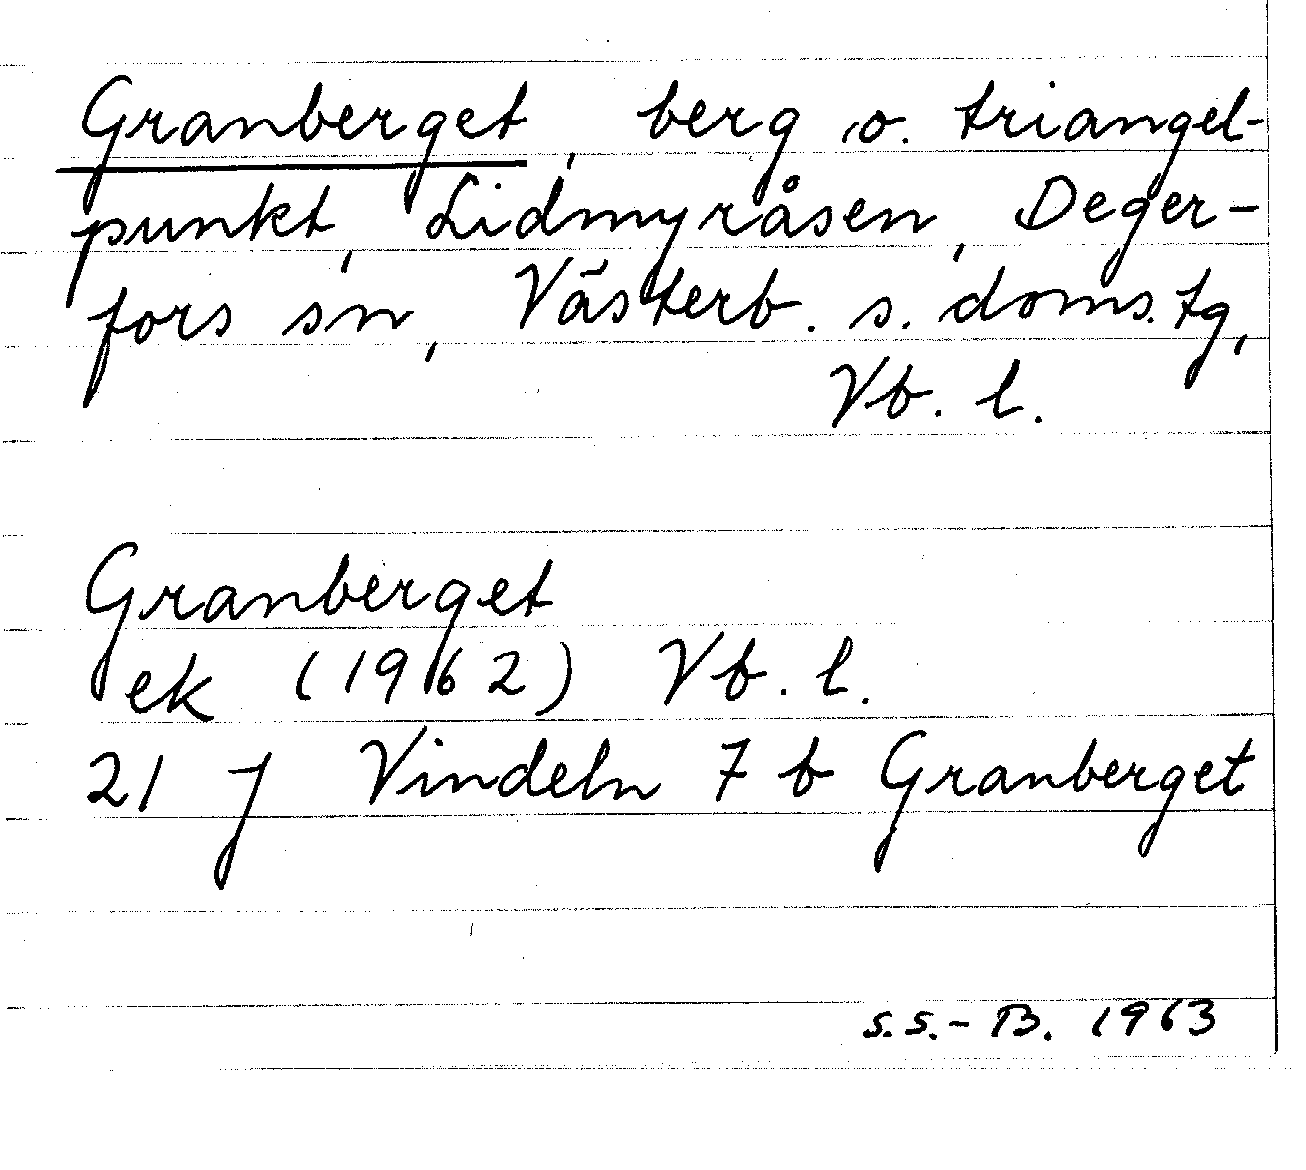 Granberget, berg o. triangel-
punkt, Lidmyråsen, Deger-
fors sn, Västerb. s. doms. tg,
Vb. l.
Granberget
ek (1962) Vb. l.
21 J Vindeln 7 b Granberget
S.S.-B. 1963